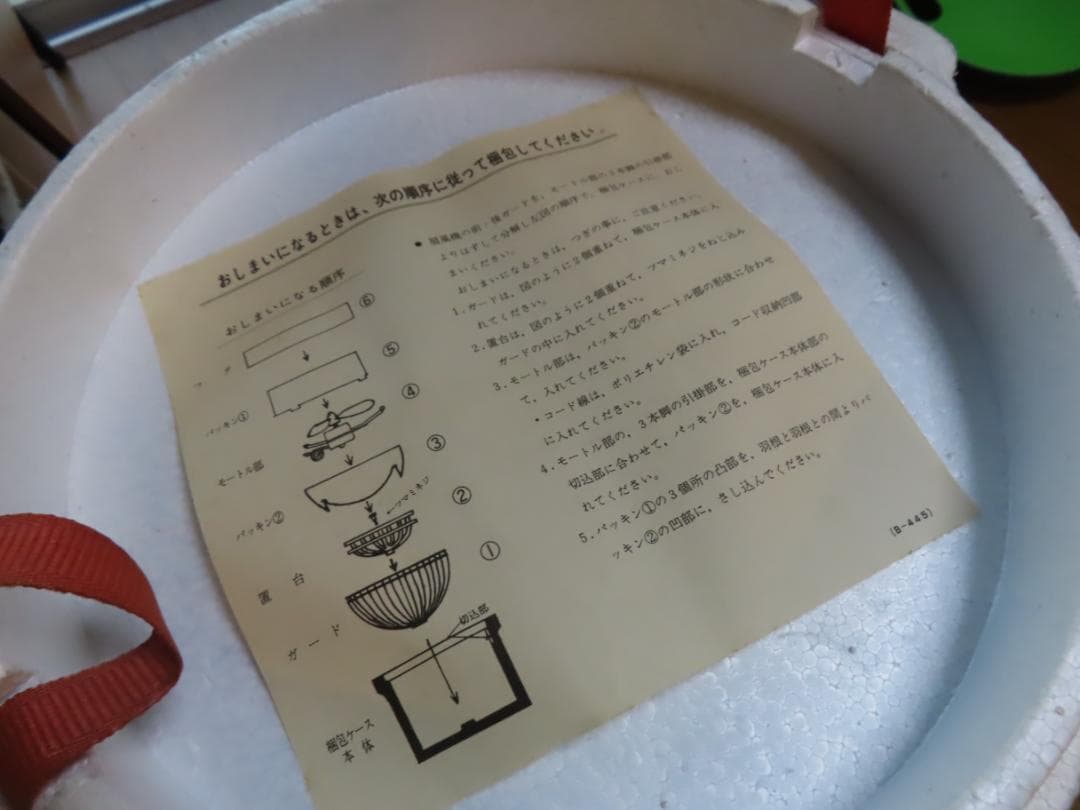 おしまいになるときは、次の順序に従って梱包してください。
おしまいになる順序
⑥
フタ
⑤
パッキン①
④
モートル部
③
パッキン②
ツマミネジ
②
置台
①
ガード
切込部
梱包ケース
本体
● 扇風機の前・後ガードを、モートル部の3本脚の引掛部
よりはずして分解し左図の順序で、梱包ケースに、おし
まいください。
おしまいになるときは、つぎの事に、ご注意ください。
1.ガードは、図のように2個重ねて、梱包ケース本体に入
れてください。
2.置台は、図のように2個重ねて、ツマミネジをねじ込み
ガードの中に入れてください。
3.モートル部は、パッキン②のモートル部の形状に合わせ
て、入れてください。
•コード線は、ポリエチレン袋に入れ、コード収納凹部
に入れてください。
4.モートル部の、3本脚の引掛部を、梱包ケース本体部の
切込部に合わせて、パッキン②を、梱包ケース本体に入
れてください。
5.パッキン①の3個所の凸部を、羽根と羽根との間よりパ
ッキン②の凹部に、さし込んでください。
(B-445)